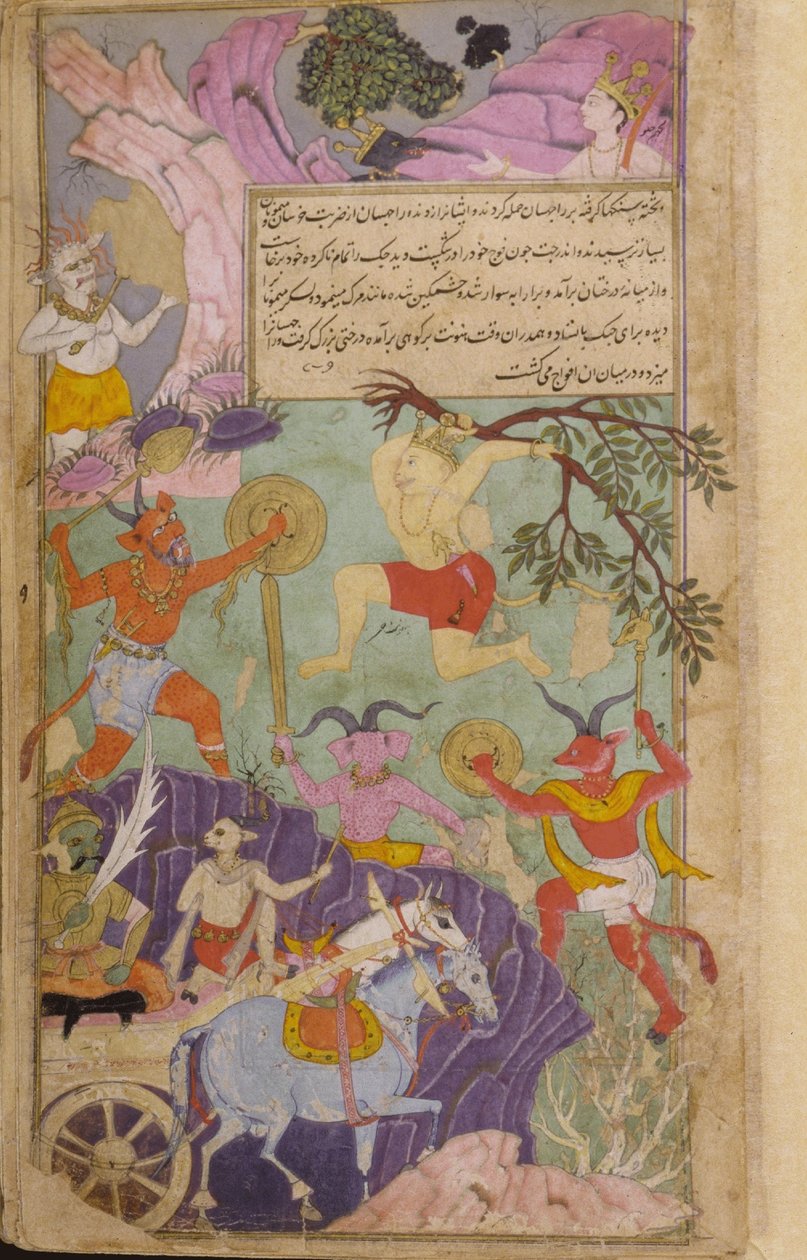 وتخته سنگها گرفته بر راجهسان حمله کردند و ایشانرا زدند و راجهسان از ضربت میمونان
بسیار ترسیدند و اندرجت چون فوج خود را در شکست دید جگ را تمام ناکرده خود برخاست
و از میانهٔ درختان برآمد و برارابه سوار شد و خشمگین شده مانند مرگ مینمود و لشکر میمونانرا
دیده برای جنگ بایستاد و همدران وقت هنونت بر کوهی برآمده درختی بزرگ گرفت و راجهسانرا
میزد و در میان آن افواج می گشت
هنونت